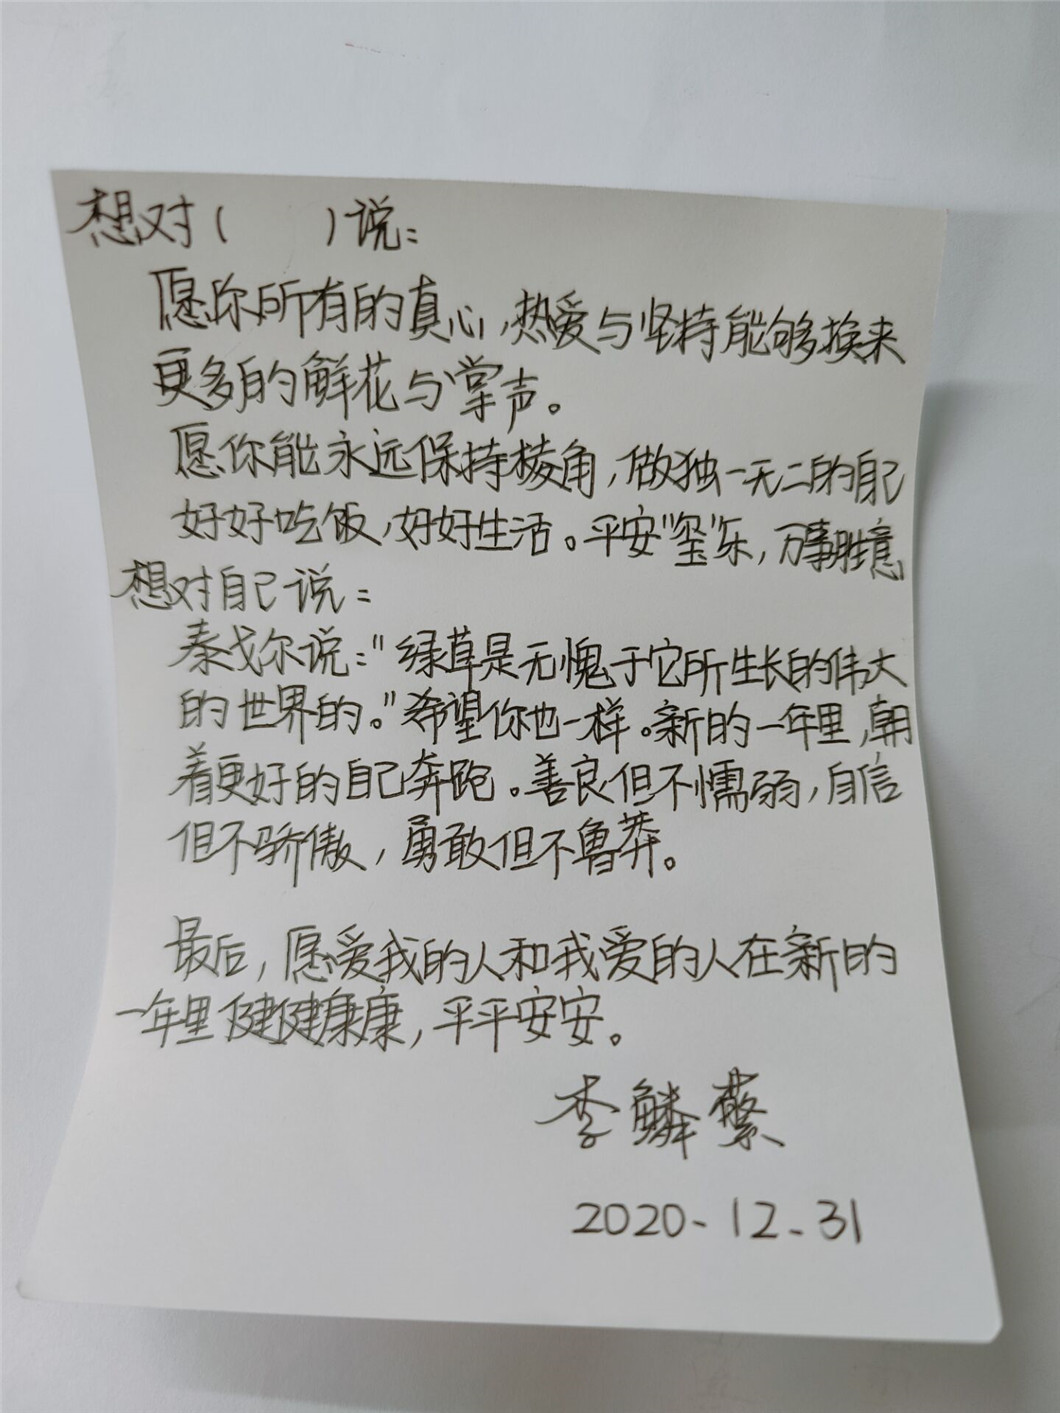 想对(　　)说:
愿你所有的真心,热爱与坚持能够换来
更多的鲜花与掌声。
愿你能永远保持棱角,做独一无二的自己
好好吃饭,好好生活。平安"玺"乐,万事胜意
想对自己说:
泰戈尔说:"绿草是无愧于它所生长的伟大
的世界的。"希望你也一样。新的一年里,朝
着更好的自己奔跑。善良但不懦弱,自信
但不骄傲,勇敢但不鲁莽。
最后,愿爱我的人和我爱的人在新的
一年里健健康康,平平安安。
李鳞
2020-12-31